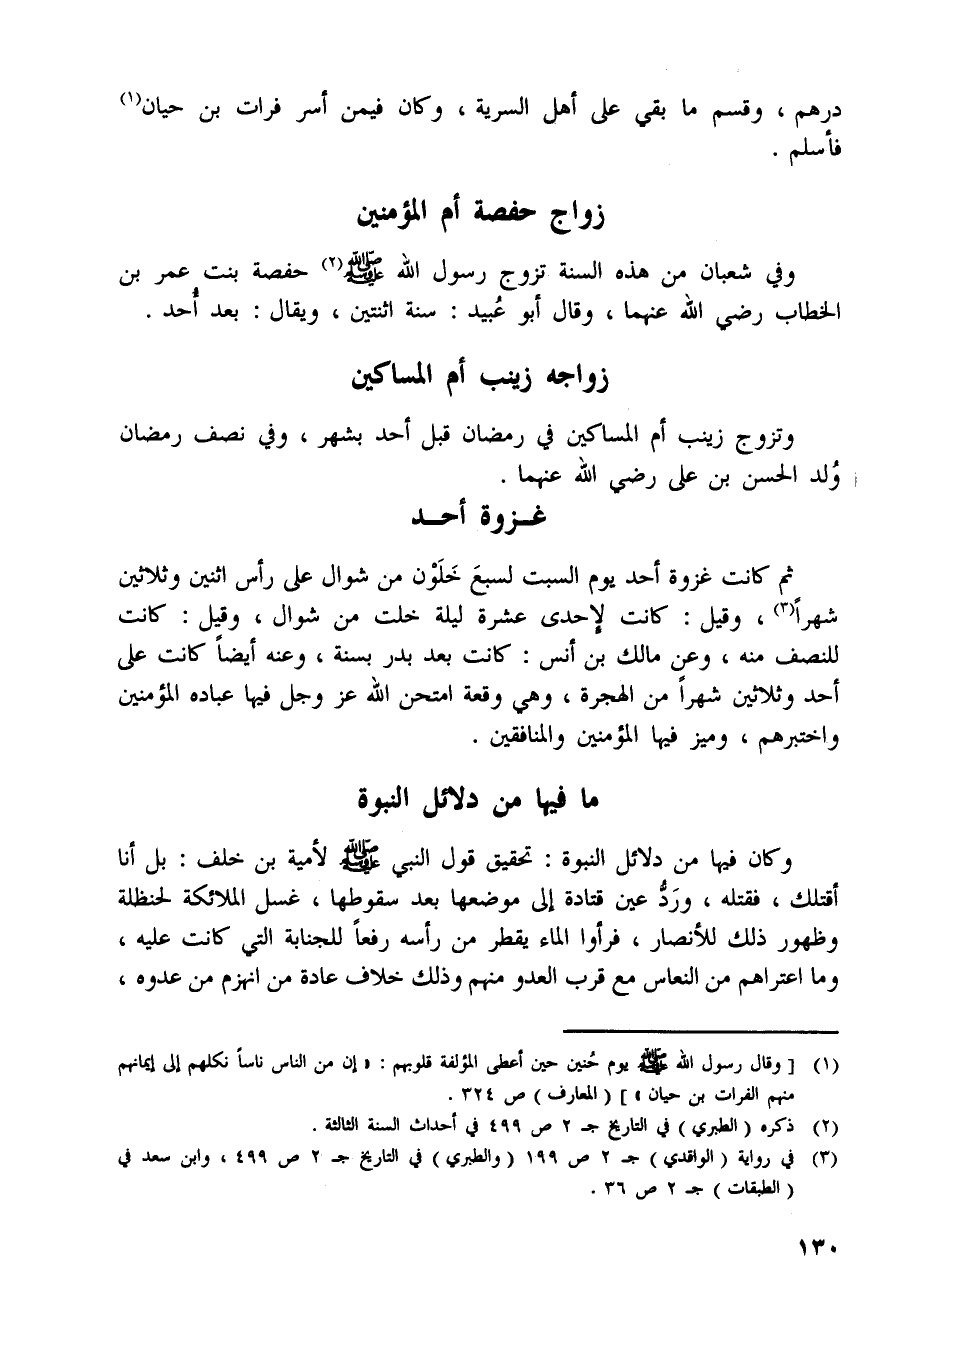 درهم ، وقسم ما بقي على أهل السرية ، وكان فيمن أسر فرات بن حيان(١)
فأسلم .
زواج حفصة أم المؤمنين
وفي شعبان من هذه السنة تزوج رسول الله ﷺ(٢) حفصة بنت عمر بن
الخطاب رضي الله عنهما ، وقال أبو عُبيد : سنة اثنتين ، ويقال : بعد أُحد .
زواجه زينب أم المساكين
وتزوج زينب أم المساكين في رمضان قبل أحد بشهر ، وفي نصف رمضان
وُلد الحسن بن على رضي الله عنهما .
غـزوة أحـد
ثم كانت غزوة أحد يوم السبت لسبعَ خَلَوْن من شوال على رأس اثنين وثلاثين
شهراً(٣) ، وقيل : كانت لإحدى عشرة ليلة خلت من شوال ، وقيل : كانت
للنصف منه ، وعن مالك بن أنس : كانت بعد بدر بسنة ، وعنه أيضاً كانت على
أحد وثلاثين شهراً من الهجرة ، وهي وقعة امتحن الله عز وجل فيها عباده المؤمنين
واختبرهم ، وميز فيها المؤمنين والمنافقين .
ما فيها من دلائل النبوة
وكان فيها من دلائل النبوة : تحقيق قول النبي ﷺ لأمية بن خلف : بل أنا
أقتلك ، فقتله ، ورَدُّ عين قتادة إلى موضعها بعد سقوطها ، غسل الملائكة لحنظلة
وظهور ذلك للأنصار ، فرأوا الماء يقطر من رأسه رفعاً للجنابة التي كانت عليه ،
وما اعتراهم من النعاس مع قرب العدو منهم وذلك خلاف عادة من انهزم من عدوه ،
(١) [ وقال رسول الله ﷺ يوم حُنين حين أعطى المؤلفة قلوبهم : « إن من الناس ناساً نكلهم إلى إيمانهم
منهم الفرات بن حيان » ] ( المعارف ) ص ٣٢٤ .
(٢) ذكره ( الطبري ) في التاريخ جـ ٢ ص ٤٩٩ في أحداث السنة الثالثة .
(٣) في رواية ( الواقدي ) جـ ٢ ص ١٩٩ ( والطبري ) في التاريخ جـ ٢ ص ٤٩٩ ، وابن سعد في
( الطبقات ) جـ ٢ ص ٣٦ .
١٣٠